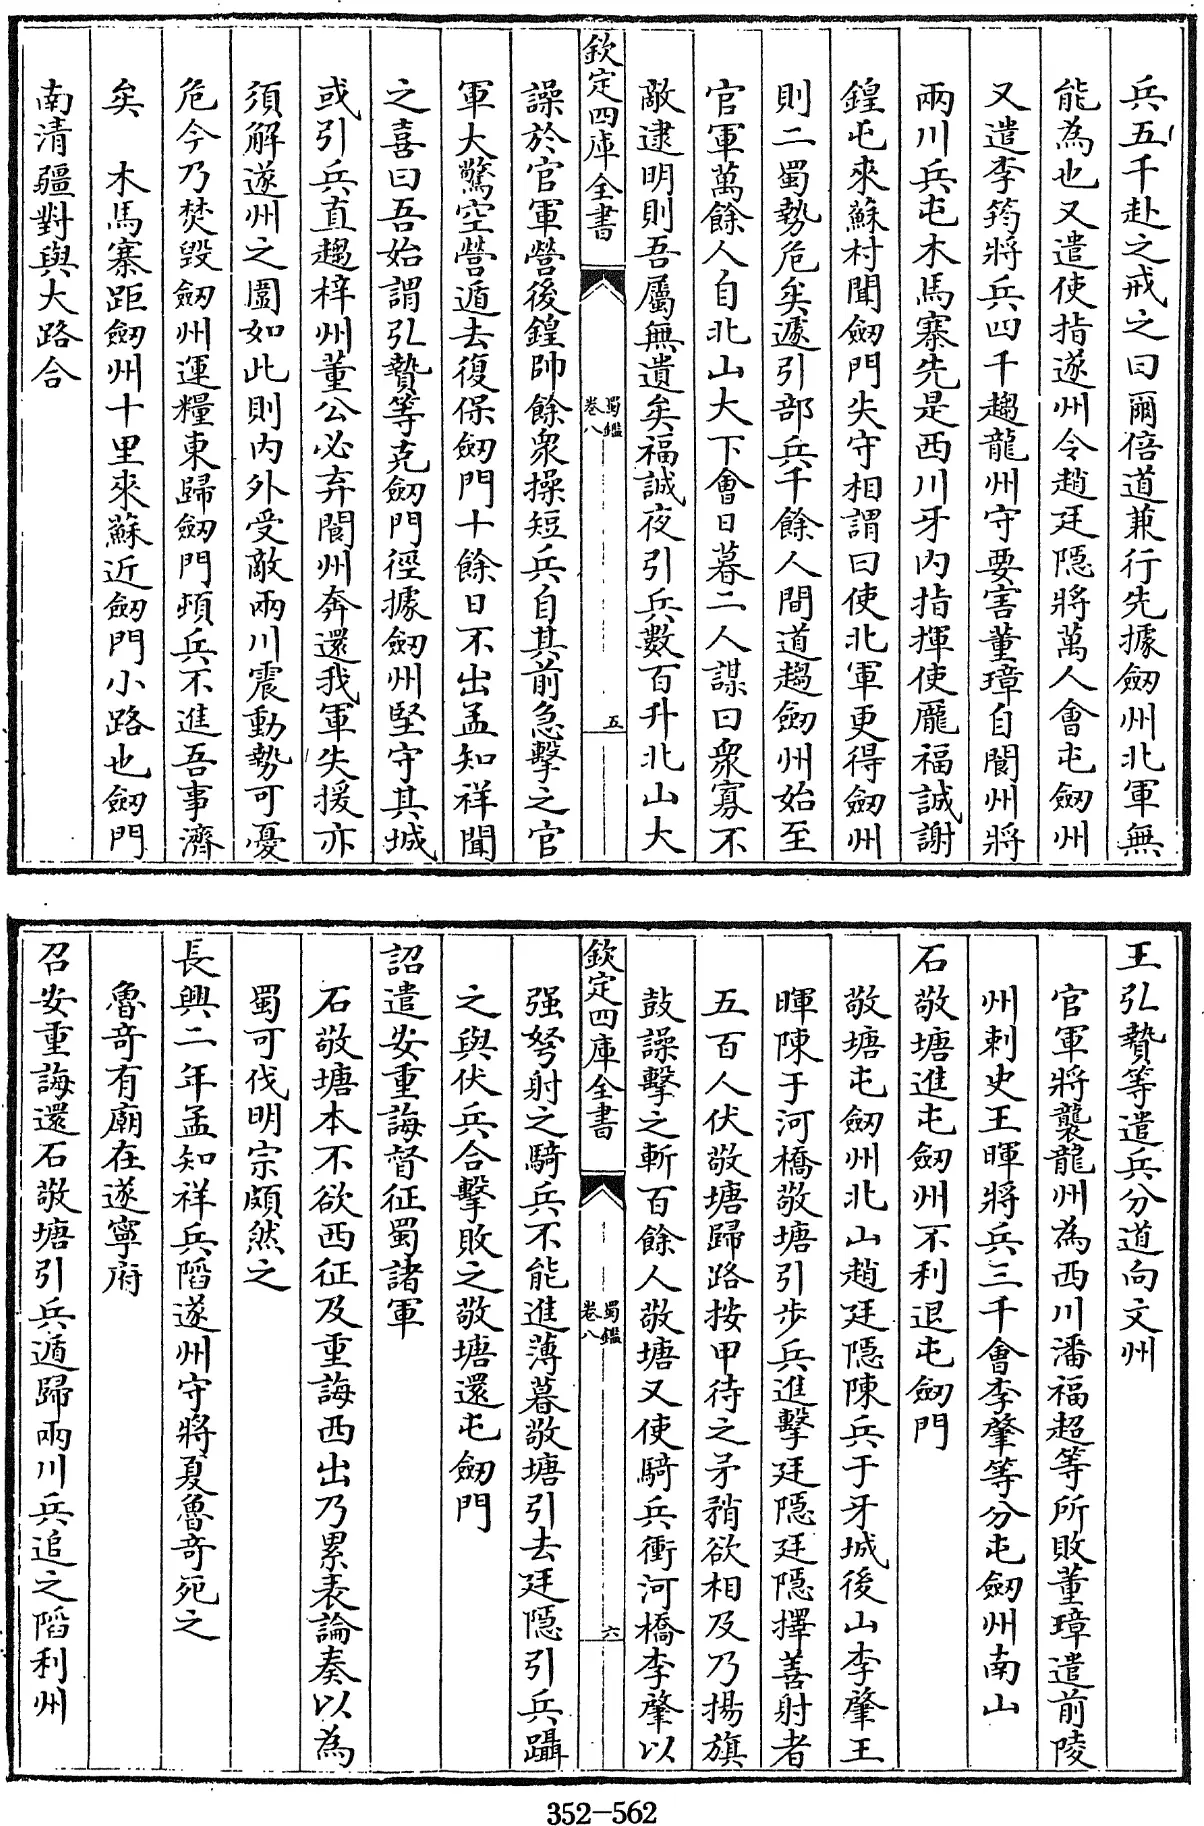 兵五千赴之戒之曰爾倍道兼行先據劒州北軍無
能為也又遣使指遂州令趙廷隱將萬人㑹屯劒州
又遣李筠將兵四千趨龍州守要害董璋自閬州將
兩川兵屯木馬寨先是西川牙内指揮使龎福誠謝
鍠屯來蘇村聞劒門失守相謂曰使北軍更得劒州
則二蜀勢危矣遽引部兵千餘人間道趨劒州始至
官軍萬餘人自北山大下㑹日暮二人謀曰衆寡不
敵逮明則吾屬無遺矣福誠夜引兵數百升北山大
欽定四庫全書
蜀鑑
卷八
五
譟於官軍營後鍠帥餘衆操短兵自其前急擊之官
軍大驚空營遁去復保劒門十餘日不出孟知祥聞
之喜曰吾始謂弘贄等克劒門徑據劒州堅守其城
或引兵直趨梓州董公必弃閬州奔還我軍失援亦
須解遂州之圍如此則内外受敵兩川震動勢可憂
危今乃焚毁劒州運糧東歸劒門頓兵不進吾事濟
矣　木馬寨距劒州十里來蘇近劒門小路也劒門
南清疆對與大路合
王弘贄等遣兵分道向文州
官軍將襲龍州為西川潘福超等所敗董璋遣前陵
州刺史王暉將兵三千㑹李肇等分屯劒州南山
石敬塘進屯劒州不利退屯劒門
敬塘屯劒州北山趙廷隱陳兵于牙城後山李肇王
暉陳于河橋敬塘引步兵進擊廷隱廷隱擇善射者
五百人伏敬塘歸路按甲待之矛矟欲相及乃揚旗
鼓譟擊之斬百餘人敬塘又使騎兵衝河橋李肇以
欽定四庫全書
蜀鑑
卷八
六
强弩射之騎兵不能進薄暮敬塘引去廷隱引兵躡
之與伏兵合擊敗之敬塘還屯劒門
詔遣安重誨督征蜀諸軍
石敬塘本不欲西征及重誨西出乃累表論奏以為
蜀可伐明宗頗然之
長興二年孟知祥兵䧟遂州守將夏魯奇死之
魯奇有廟在遂寧府
召安重誨還石敬塘引兵遁歸兩川兵追之䧟利州
352-562